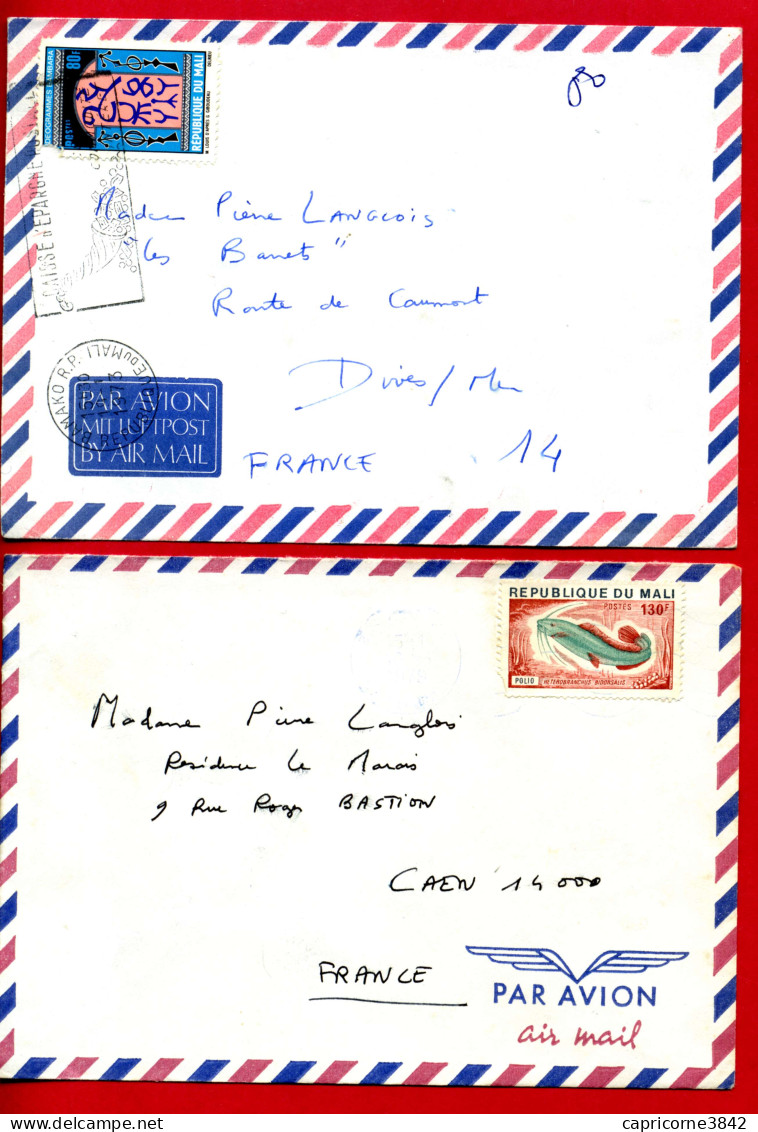 IDEOGRAMMES BAMBARA
80F
POSTES
REPUBLIQUE DU MALI
CAISSE D'EPARGNE
80
Madame Pierre LANGLOIS
"Les Bannets"
Route de Caumont
Dives/Mer
FRANCE 14
BAMAKO R.P.
REPUBLIQUE DU MALI
PAR AVION
MIT LUFTPOST
BY AIR MAIL
REPUBLIQUE DU MALI
POSTES 130F
POLIO HETEROBRANCHUS BIDORSALIS
Madame Pierre Langlois
Residence Le Marais
9 Rue Roger BASTION
CAEN 14000
FRANCE
PAR AVION
air mail
delcampe.net
capricorne3842